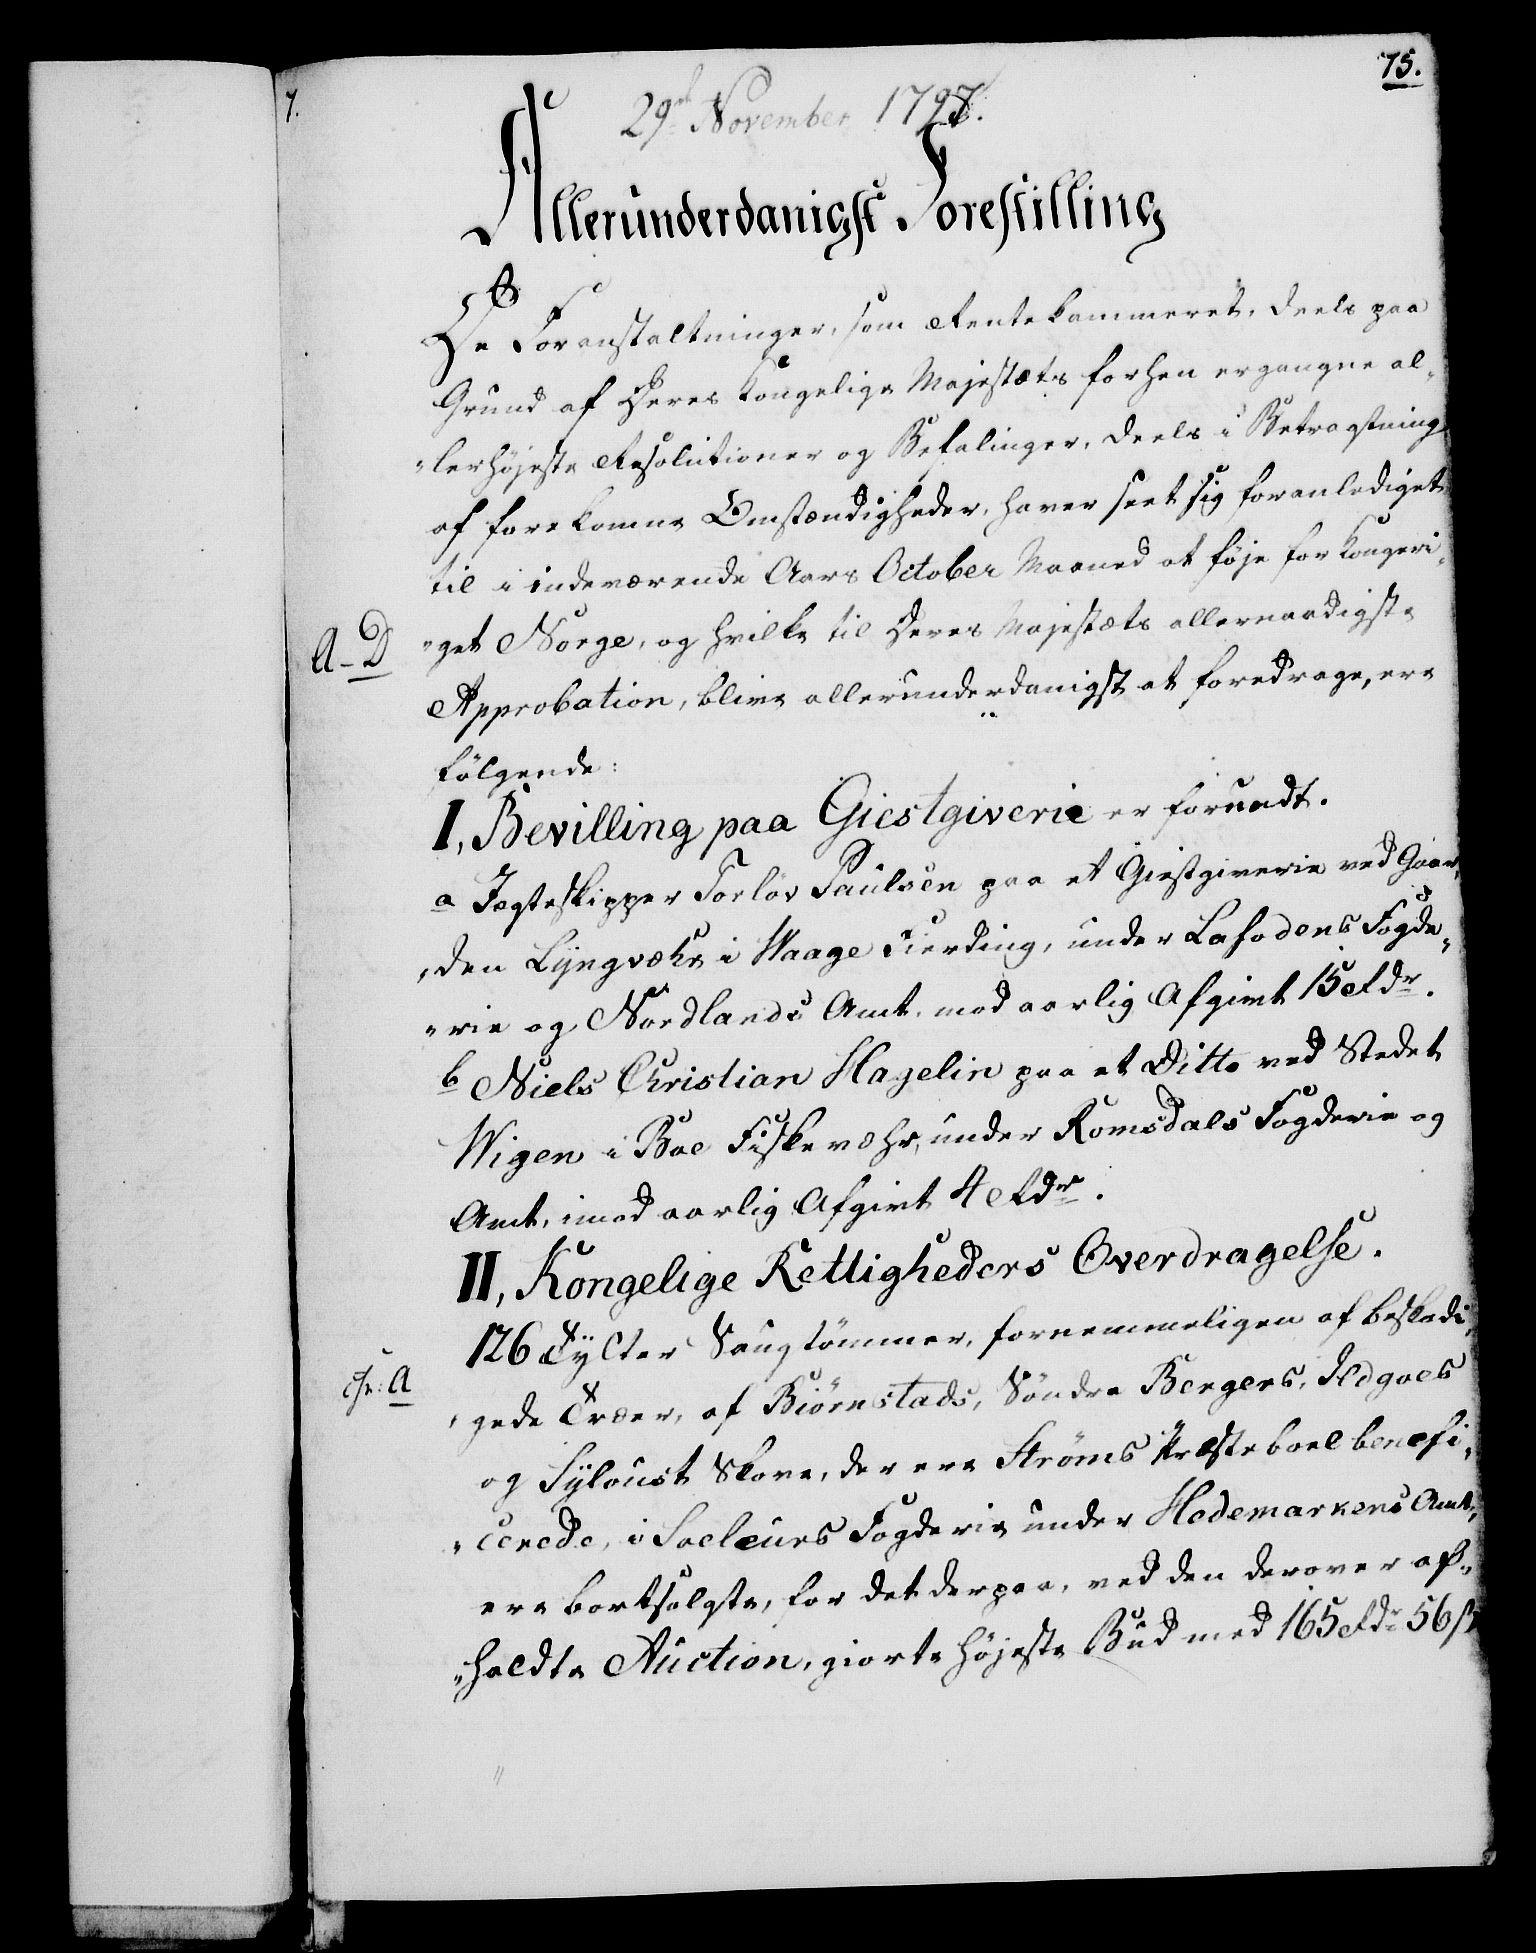 75.
7.
29de November 1797.
Allerunderdanigst Forestilling
De Foranstaltninger, som Rentekammeret, deels paa
Grund af Deres Kongelige Majestæts forhen ergangne al-
"lerhøjeste Resolutioner og Befalinger, deels i Betragtning
af forekomne Omstændigheder, haver seet sig foranlediget
til i indeværende Aars October Maaned at føje for Kongeri-
A-D
"get Norge, og hvilke til Deres Majestæts allernaadigste
Approbation, blive allerunderdanigst at foredrage, ere
følgende:
I, Bevilling paa Giestgiverie er forundt.
a Jegteskipper Torlöv Paulsen paa et Giestgiverie ved Gaar-
"den Lyngvæhr i Waage Fierding, under Lofodens Fogde-
"rie og Nordlands Amt. mod aarlig Afgivt 15 Rdr.
b Niels Christian Hagelin paa et Ditto ved Stedet
Wigen i Boe Fiskevæhr, under Romsdals Fogderie og
Amt, imod aarlig Afgivt 4 Rdr.
II, Kongelige Rettigheders Overdragelse.
126 Tylter Saugtømmer, fornemmeligen af beskadi-
cfr: A
"gede Træer, af Biörnstads, Söndre Bergers, Ildgoes
og Syloust Skove, der ere Ströms Præsteboel benefi-
"cerede, i Soeleurs Fogderie under Hedemarkens Amt,
ere bortsolgte, for det derpaa, ved den derover af-
"holdte Auction, giorte højeste Bud med 165 Rdr 56 ß